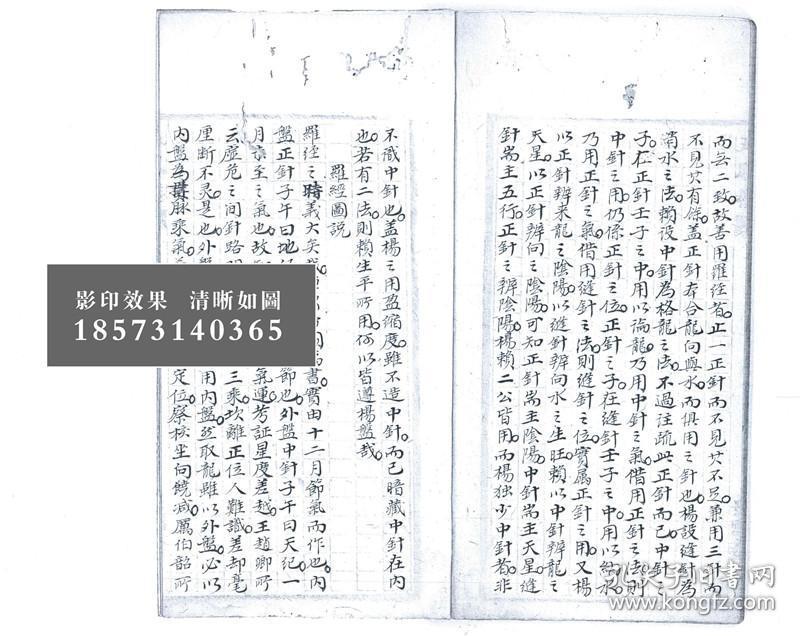 而無二致故善用羅經者止一正針而不見其不足兼用三針而
不見其有餘蓋正針本合龍向與水而俱用之針也楊設縫針為
消水之法賴設中針為格龍之法不過注疏此正針而已中針之
子在正針壬子之中用以論龍乃用中針之氣借用正針之法則
中針之用仍係正針之位正針之子在縫針壬子之中用以納水
乃用正針之氣借用縫針之法則縫針之位實属正針之用又楊
以正針辨来龍之陰陽以縫針辨向水之生旺賴以中針辨龍之
天星以正針辨向之陰陽可知正針耑主陰陽中針耑主天星縫
針耑主五行正針之辨陰陽楊賴二公皆用而楊独少中針者非
不識中針也蓋楊之用盈縮度雖不造中針而已暗藏中針在内
也若有二法則賴生平所用何以皆遵楊盤哉
羅經圖説
羅經之時義大矣 書實由十二月節氣而作也内
盤正針子午曰地 節也外盤中針子午曰天紀一
月 至之氣也故 氣運考証星度差越王趙卿所
云虚危之间針路 三乘坎離正位人難識差却毫
厘断不灵是也外盤 用内盤 取龍雖以外盤必以
内盤為 脉乘氣 定位察核坐向饒减厲伯韶所
影印效果 清晰如圖
18573140365
孔夫子旧書网
www.kongfz.com